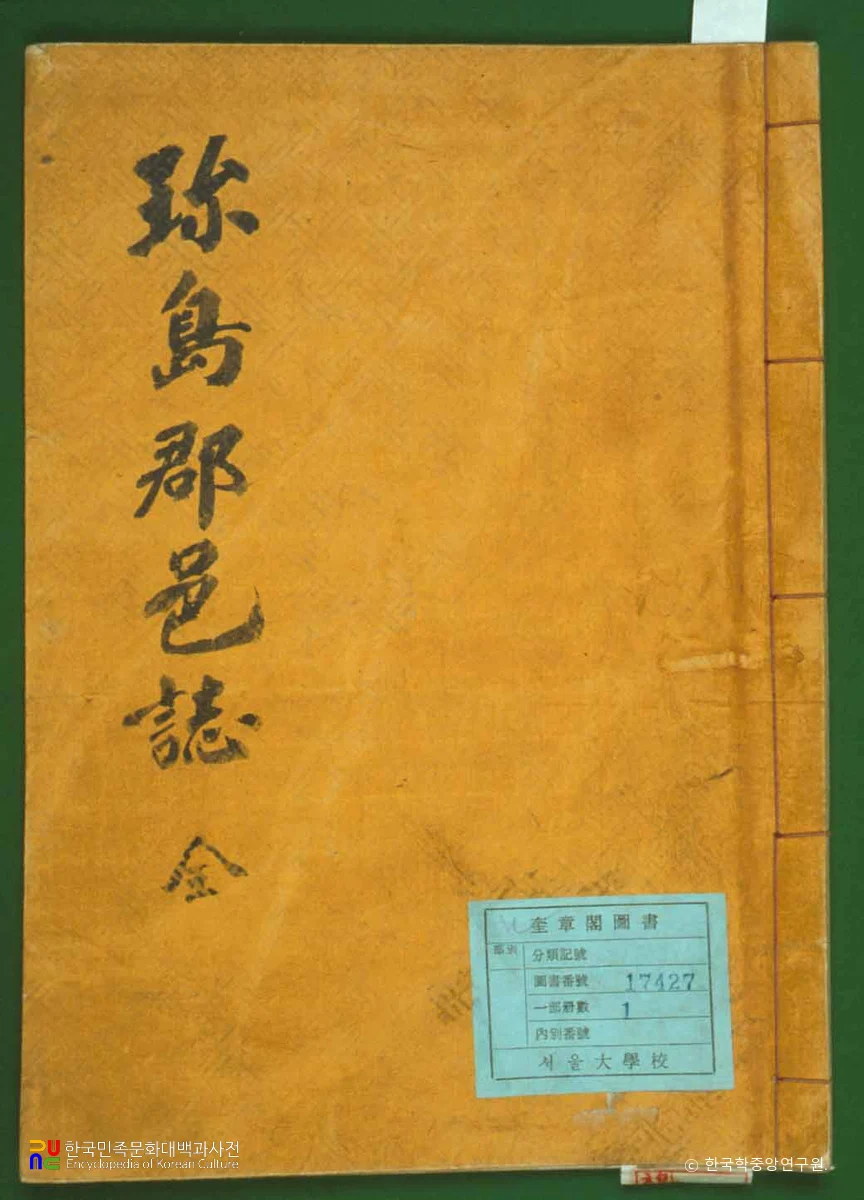 珎島郡邑誌 全
奎章閣圖書
部別
分類記號
圖書番號 17427
一部冊數 1
內別番號
서울大學校
한국민족문화대백과사전
Encyclopedia of Korean Culture
© 한국학중앙연구원